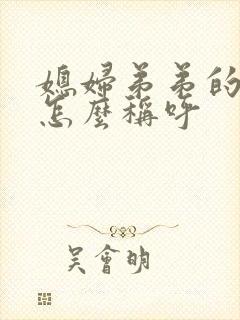 媳婦弟弟的
怎麼稱呼
吳會明